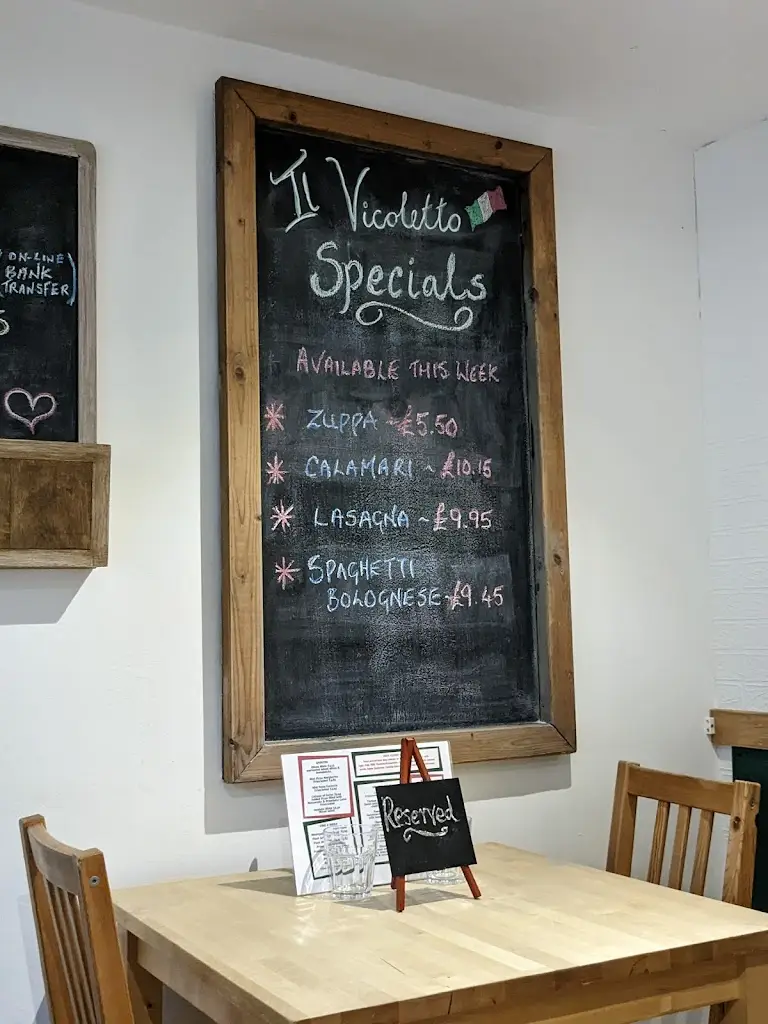 (ON-LINE)
BANK
TRANSFER
Il Vicoletto
Specials
AVAILABLE THIS WEEK
ZUPPA ~ £5.50
CALAMARI ~ £10.15
LASAGNA ~ £9.95
SPAGHETTI
BOLOGNESE ~ £9.45
Reserved